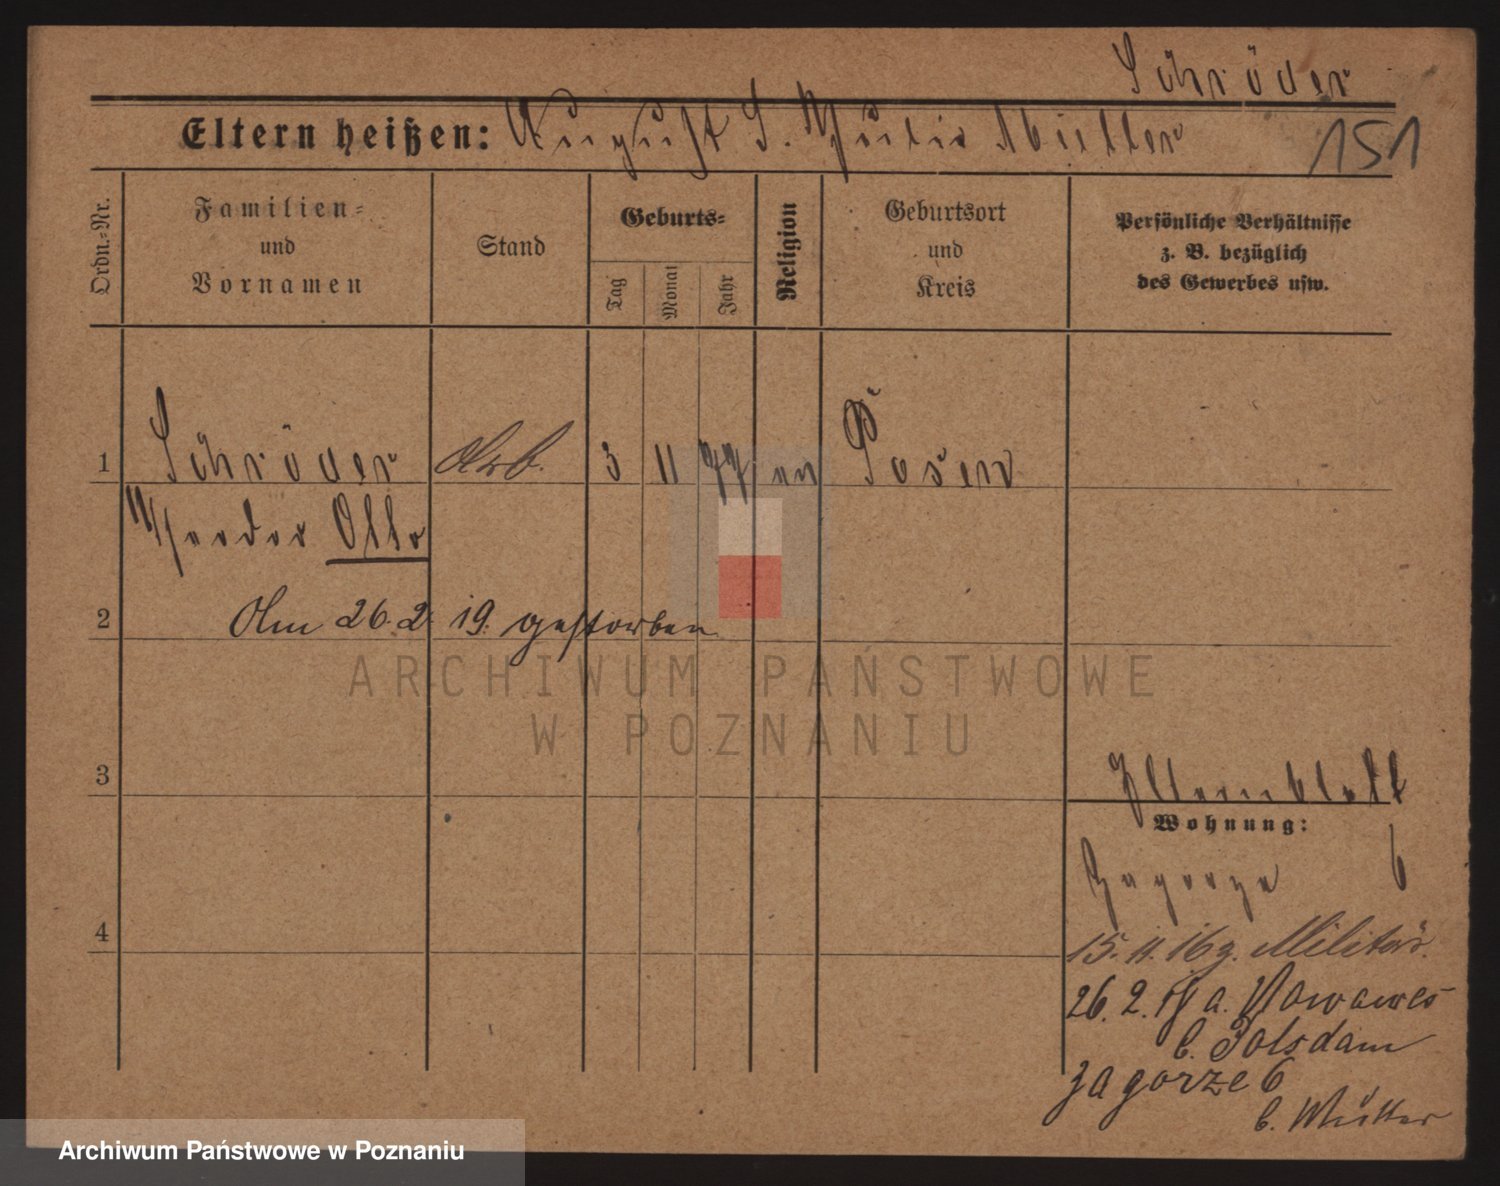 Schröder
Eltern heißen: August S. Julie Müller
151
Ordn.-Nr.
Familien-
und
Vornamen
Stand
Geburts-
Tag
Monat
Jahr
Religion
Geburtsort
und
Kreis
Persönliche Verhältnisse
z. B. bezüglich
des Gewerbes usw.
1 Schröder Arb. 3 11 77 ev Posen
Theodor Otto
2 Am 26.2. 19. gestorben
ARCHIWUM PAŃSTWOWE
W POZNANIU
3
Elternblatt
Wohnung:
Zagorze 6
4
15. 11. 16 z. Militär.
26. 2. 18 a. Nowawes
b. Potsdam
Zagorze 6
b. Mutter
Archiwum Państwowe w Poznaniu